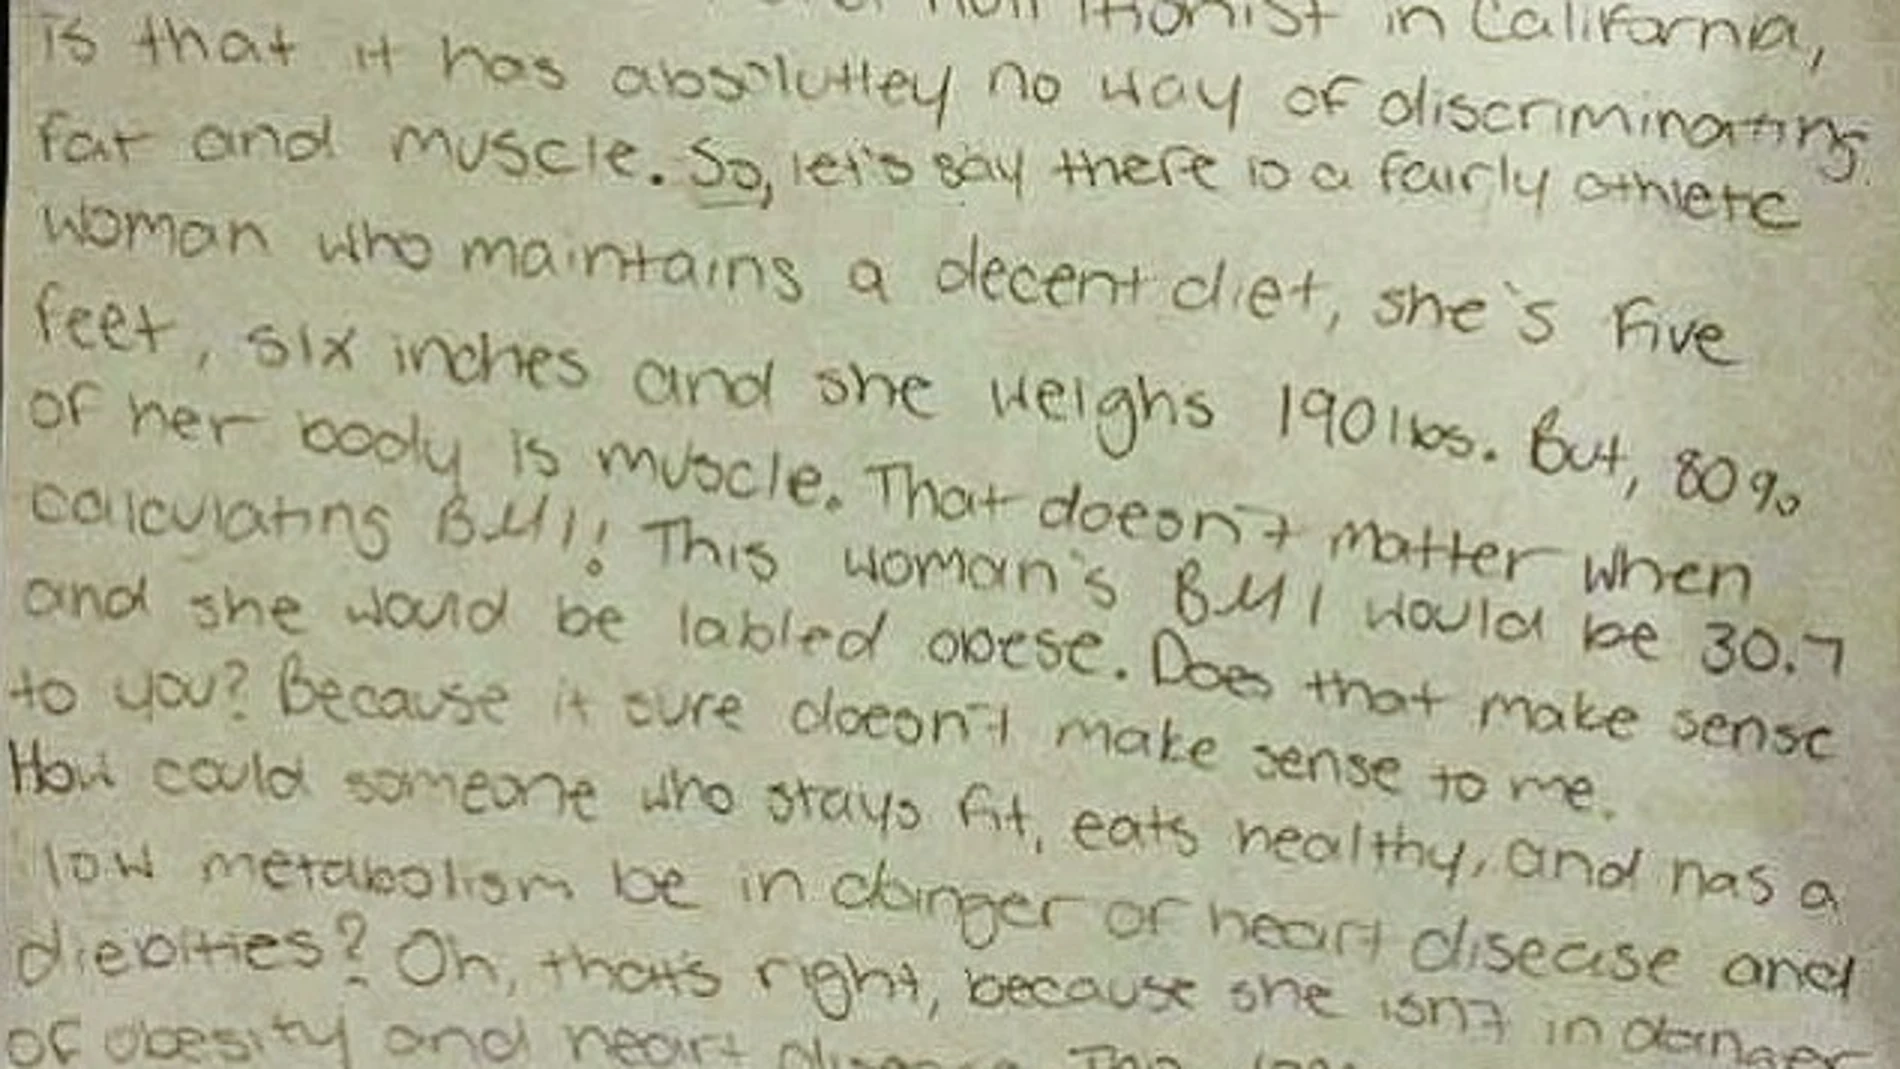 in California,
is that it has absolutley no way of discriminating
fat and muscle. So, let's say there is a fairly athletc
woman who maintains a decent diet, she's five
feet, six inches and she weighs 190 lbs. But, 80%
of her body is muscle. That doesn't matter when
calculating BMI! This woman's BMI would be 30.7
and she would be labled obese. Does that make sense
to you? Because it sure doesn't make sense to me.
How could someone who stays fit, eats healthy, and has a
low metabolism be in danger of heart disease and
diebities? Oh, that's right, because she isn't in danger
of obesity and heart